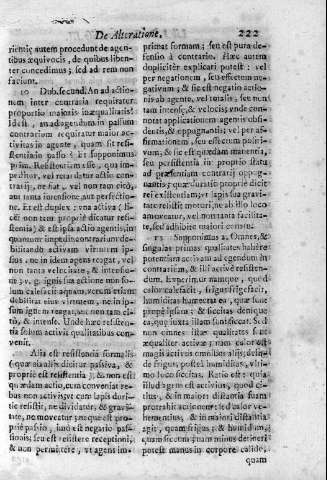 De Alteratione.
222
rientię autem procedunt de agen-
tibus æquivocis, de quibus liben-
ter concedimus; sed ad rem non
faciunt.
10 Dub. secund. An ad actio-
nem inter contraria requiratur
proportio maioris inæqualitatis?
Idest, an ad agendum in passum
contrarium requiratur maior
activitas in agente, quam sit re-
sistentia in passo? Et supponimus
primo. Resistentiam esse, qua impe-
ditur, vel retardatur actio contra-
rij; ne fiat, vel non tam cito,
aut tanta intensione aut perfectio-
ne. Et est duplex: una activa (li-
cet non tam proprie dicatur resi-
stentia); & est ipsa actio agentis, in
quantum impediti contrarium de-
bilitando activam virtutem ip-
sius, ne in idem agens reagat, vel
non tanta velocitate, & intensio-
ne; v. g. ignis sua actione non so-
lum calefacit aquam, verum etiam
debilitat eius virtutem, ne in ip-
sum ignem reagat, aut non tam ci-
tò, & intense. Unde hæc resisten-
tia solum activis qualitatibus con-
venit.
Alia est resistentia formalis
(quæ etiam dicitur passiva), &
proprie est resistentia; & non est
quædam actio, cum conveniat re-
bus non activis; ut cum lapis duri-
tie resistit, ne dividatur; & gravi-
tate, ne moveatur; neque est pro-
prie passio, imò est negatio pas-
sionis; seu est resistere receptioni,
& non permittere, ut agens im-
primat formam; seu est pura de-
fensio à contrario. Hæc autem
dupliciter explicari potest: vel
per negationem, seu effectum ne-
gativum; & sic est negatio actio-
nis ab agente, vel totalis; seu non
tam intensę, & velocis; unde con-
notat applicationem agentis obsi-
dentis, & oppugnantis; vel per af-
firmationem, seu effectum positi-
vum; & sic est quædam manentia,
seu persistentia in proprio statu
ad præsentiam contrarij oppug-
nantis; quæ duratio proprie dicit-
ur existendi; ut lapis sua gravi-
tate resistit motori, ne ab illo loco
amoveatur, vel non tanta facilita-
te, sed adhibito maiori conatu.
11 Supponimus 2. Omnes, &
singulas primas qualitates habere
potentiam activam ad agendum in
contrarium, & illi activè resisten-
dum. Experimur namque, quod
calor calefacit, frigus frigefacit,
humiditas humectat ea, quæ sunt
prope ipsum; & siccitas denique
ea, quæ iuxta illam sunt siccat. Sed
non omnes istæ qualitates sunt
æqualiter activæ; nam calor est
magis activus omnibus alijs; dein-
de frigus, postea humiditas, ulti-
mo loco siccitas. Ratio est: quia
illud magis est activum, quod ci-
tius, & in maiori distantia suam
protrahit actionem: sed calor vehe-
mentius, & in maiori distantia
agit, quam frigus; & humidum,
quam siccum; tum minus detineri
potest manus in corpore calido,
quam